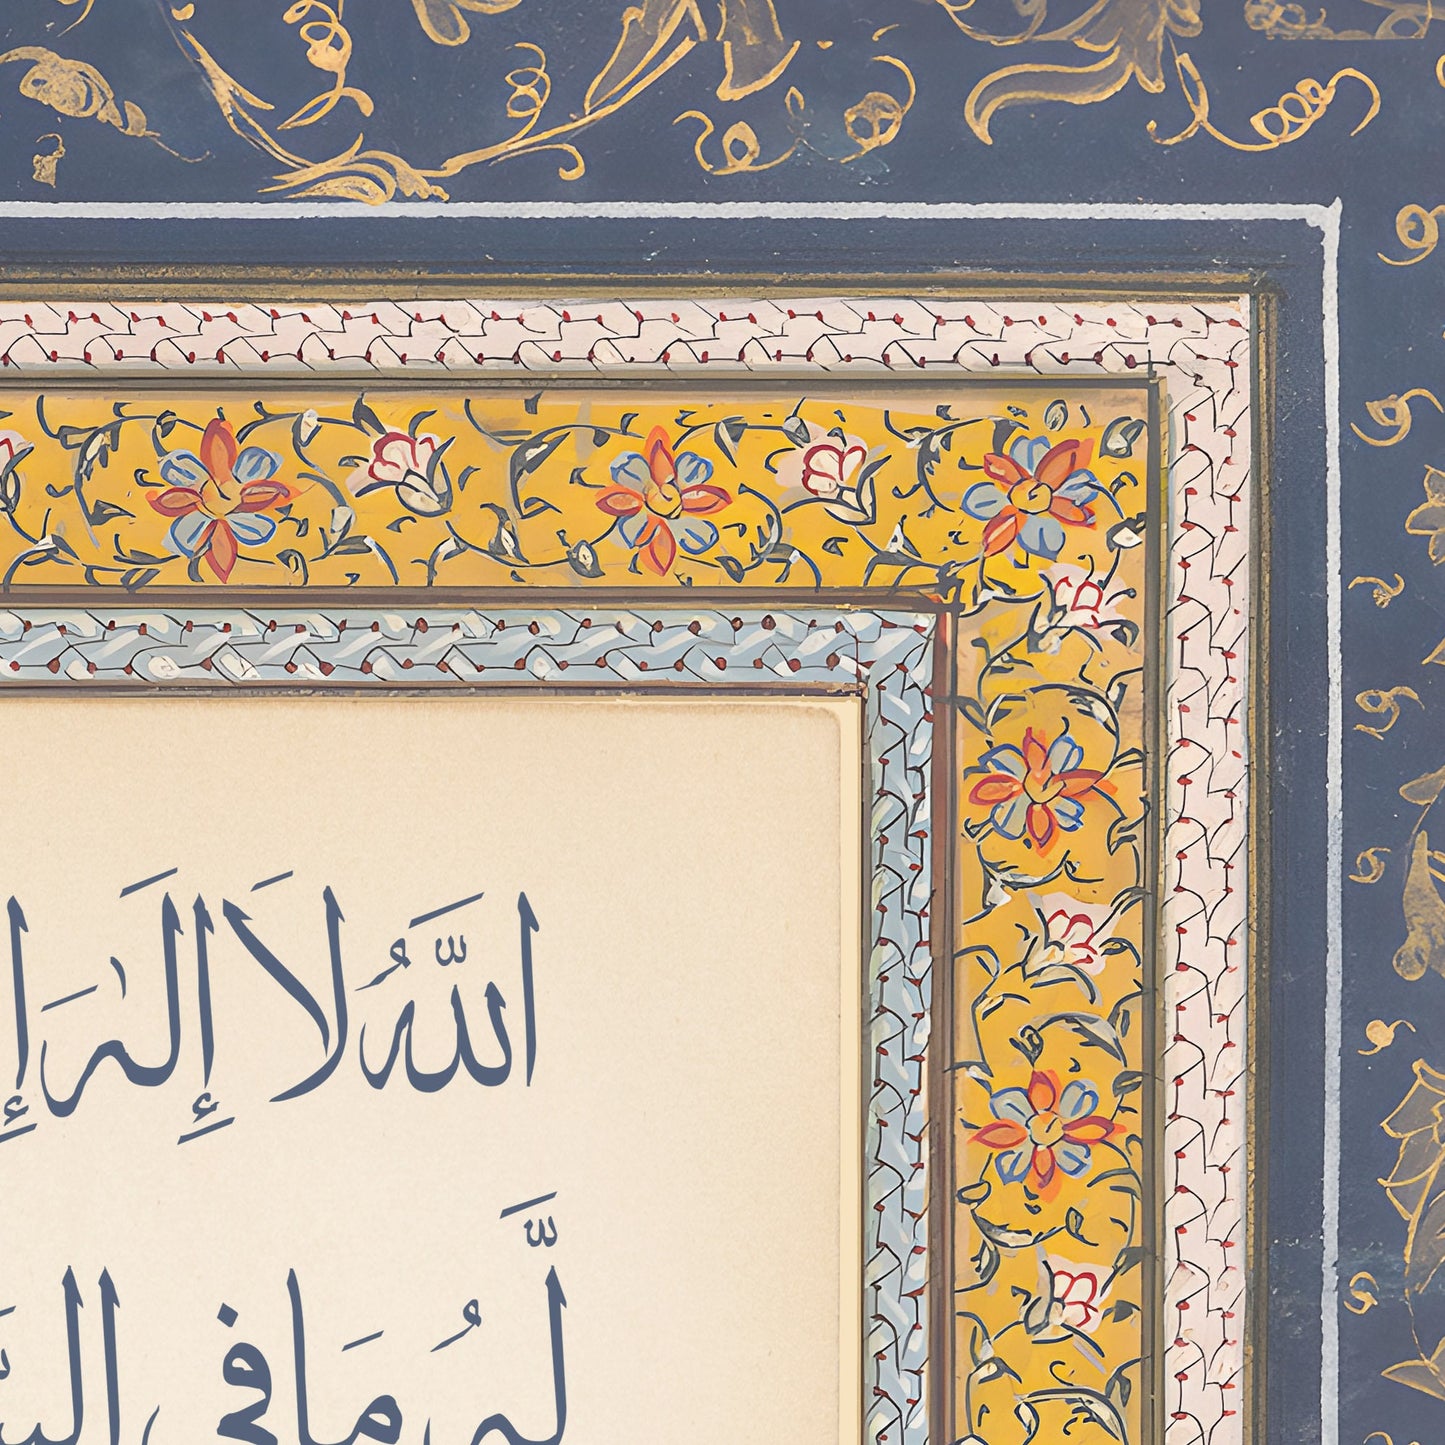 اللَّهُ لَا إِلَٰهَ إِ
لَّهُ مَا فِي ال